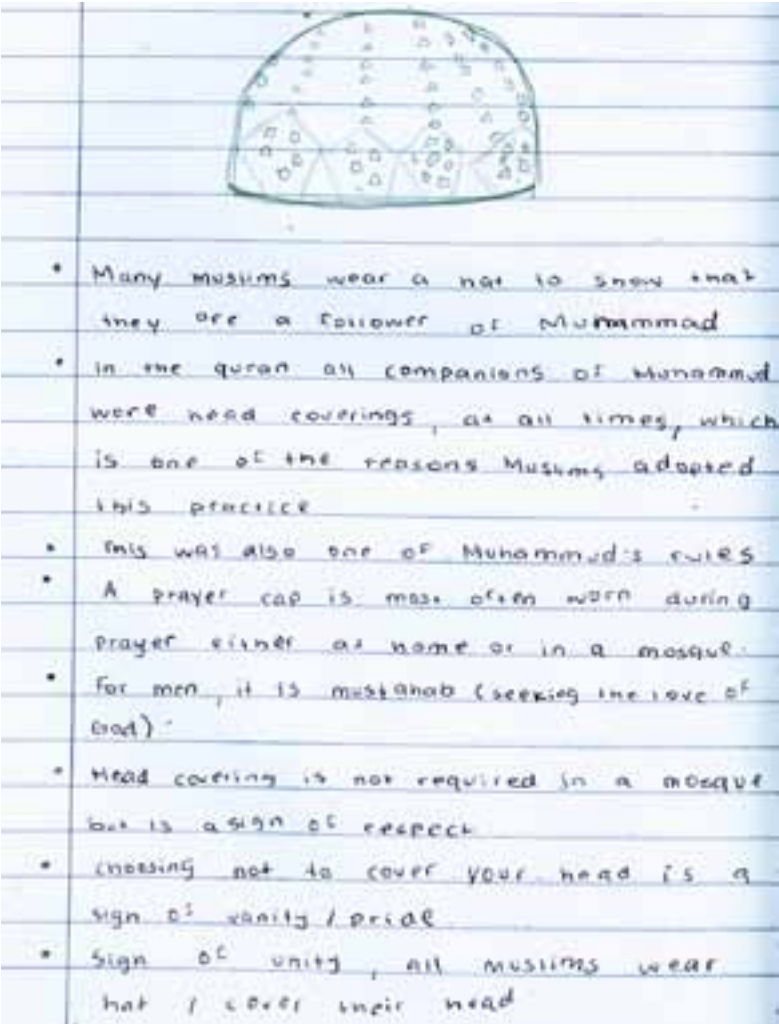 • Many muslims wear a hat to show that
they are a follower of Muhammad
• in the quran all companions of Muhammud
wore head coverings, at all times, which
is one of the reasons Muslims adopted
this practice
• This was also one of Muhammud's rules
• A prayer cap is most often worn during
prayer either at home or in a mosque.
• For men, it is mustahab (seeking the love of
God).
• Head covering is not required in a mosque
but is a sign of respect
• choosing not to cover your head is a
sign of vanity / pride
• Sign of unity, all muslims wear
hat / cover their head